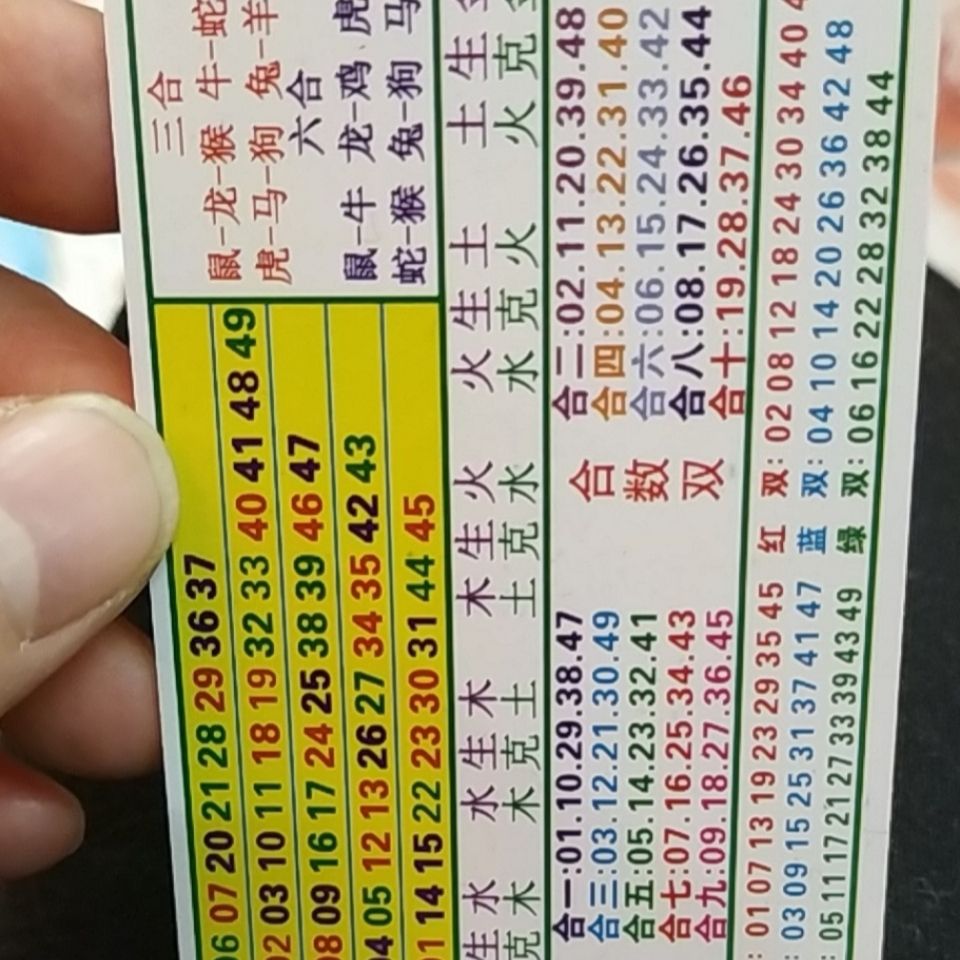 06 07 20 21 28 29 36 37
02 03 10 11 18 19 32 33 40 41 48 49
08 09 16 17 24 25 38 39 46 47
04 05 12 13 26 27 34 35 42 43
01 14 15 22 23 30 31 44 45
三合
鼠-龙-猴 牛-蛇
虎-马-狗 兔-羊
六合
鼠-牛 龙-鸡 虎
蛇-猴 兔-狗 马
生水 水生木 木生火 火生土 土生
克木 木克土 土克水 水克火 火克
合一:01.10.29.38.47
合三:03.12.21.30.49
合五:05.14.23.32.41
合七:07.16.25.34.43
合九:09.18.27.36.45
合数双
合二:02.11.20.39.48
合四:04.13.22.31.40
合六:06.15.24.33.42
合八:08.17.26.35.44
合十:19.28.37.46
: 01 07 13 19 23 29 35 45 红双: 02 08 12 18 24 30 34 40
: 03 09 15 25 31 37 41 47 蓝双: 04 10 14 20 26 36 42 48
: 05 11 17 21 27 33 39 43 49 绿双: 06 16 22 28 32 38 44